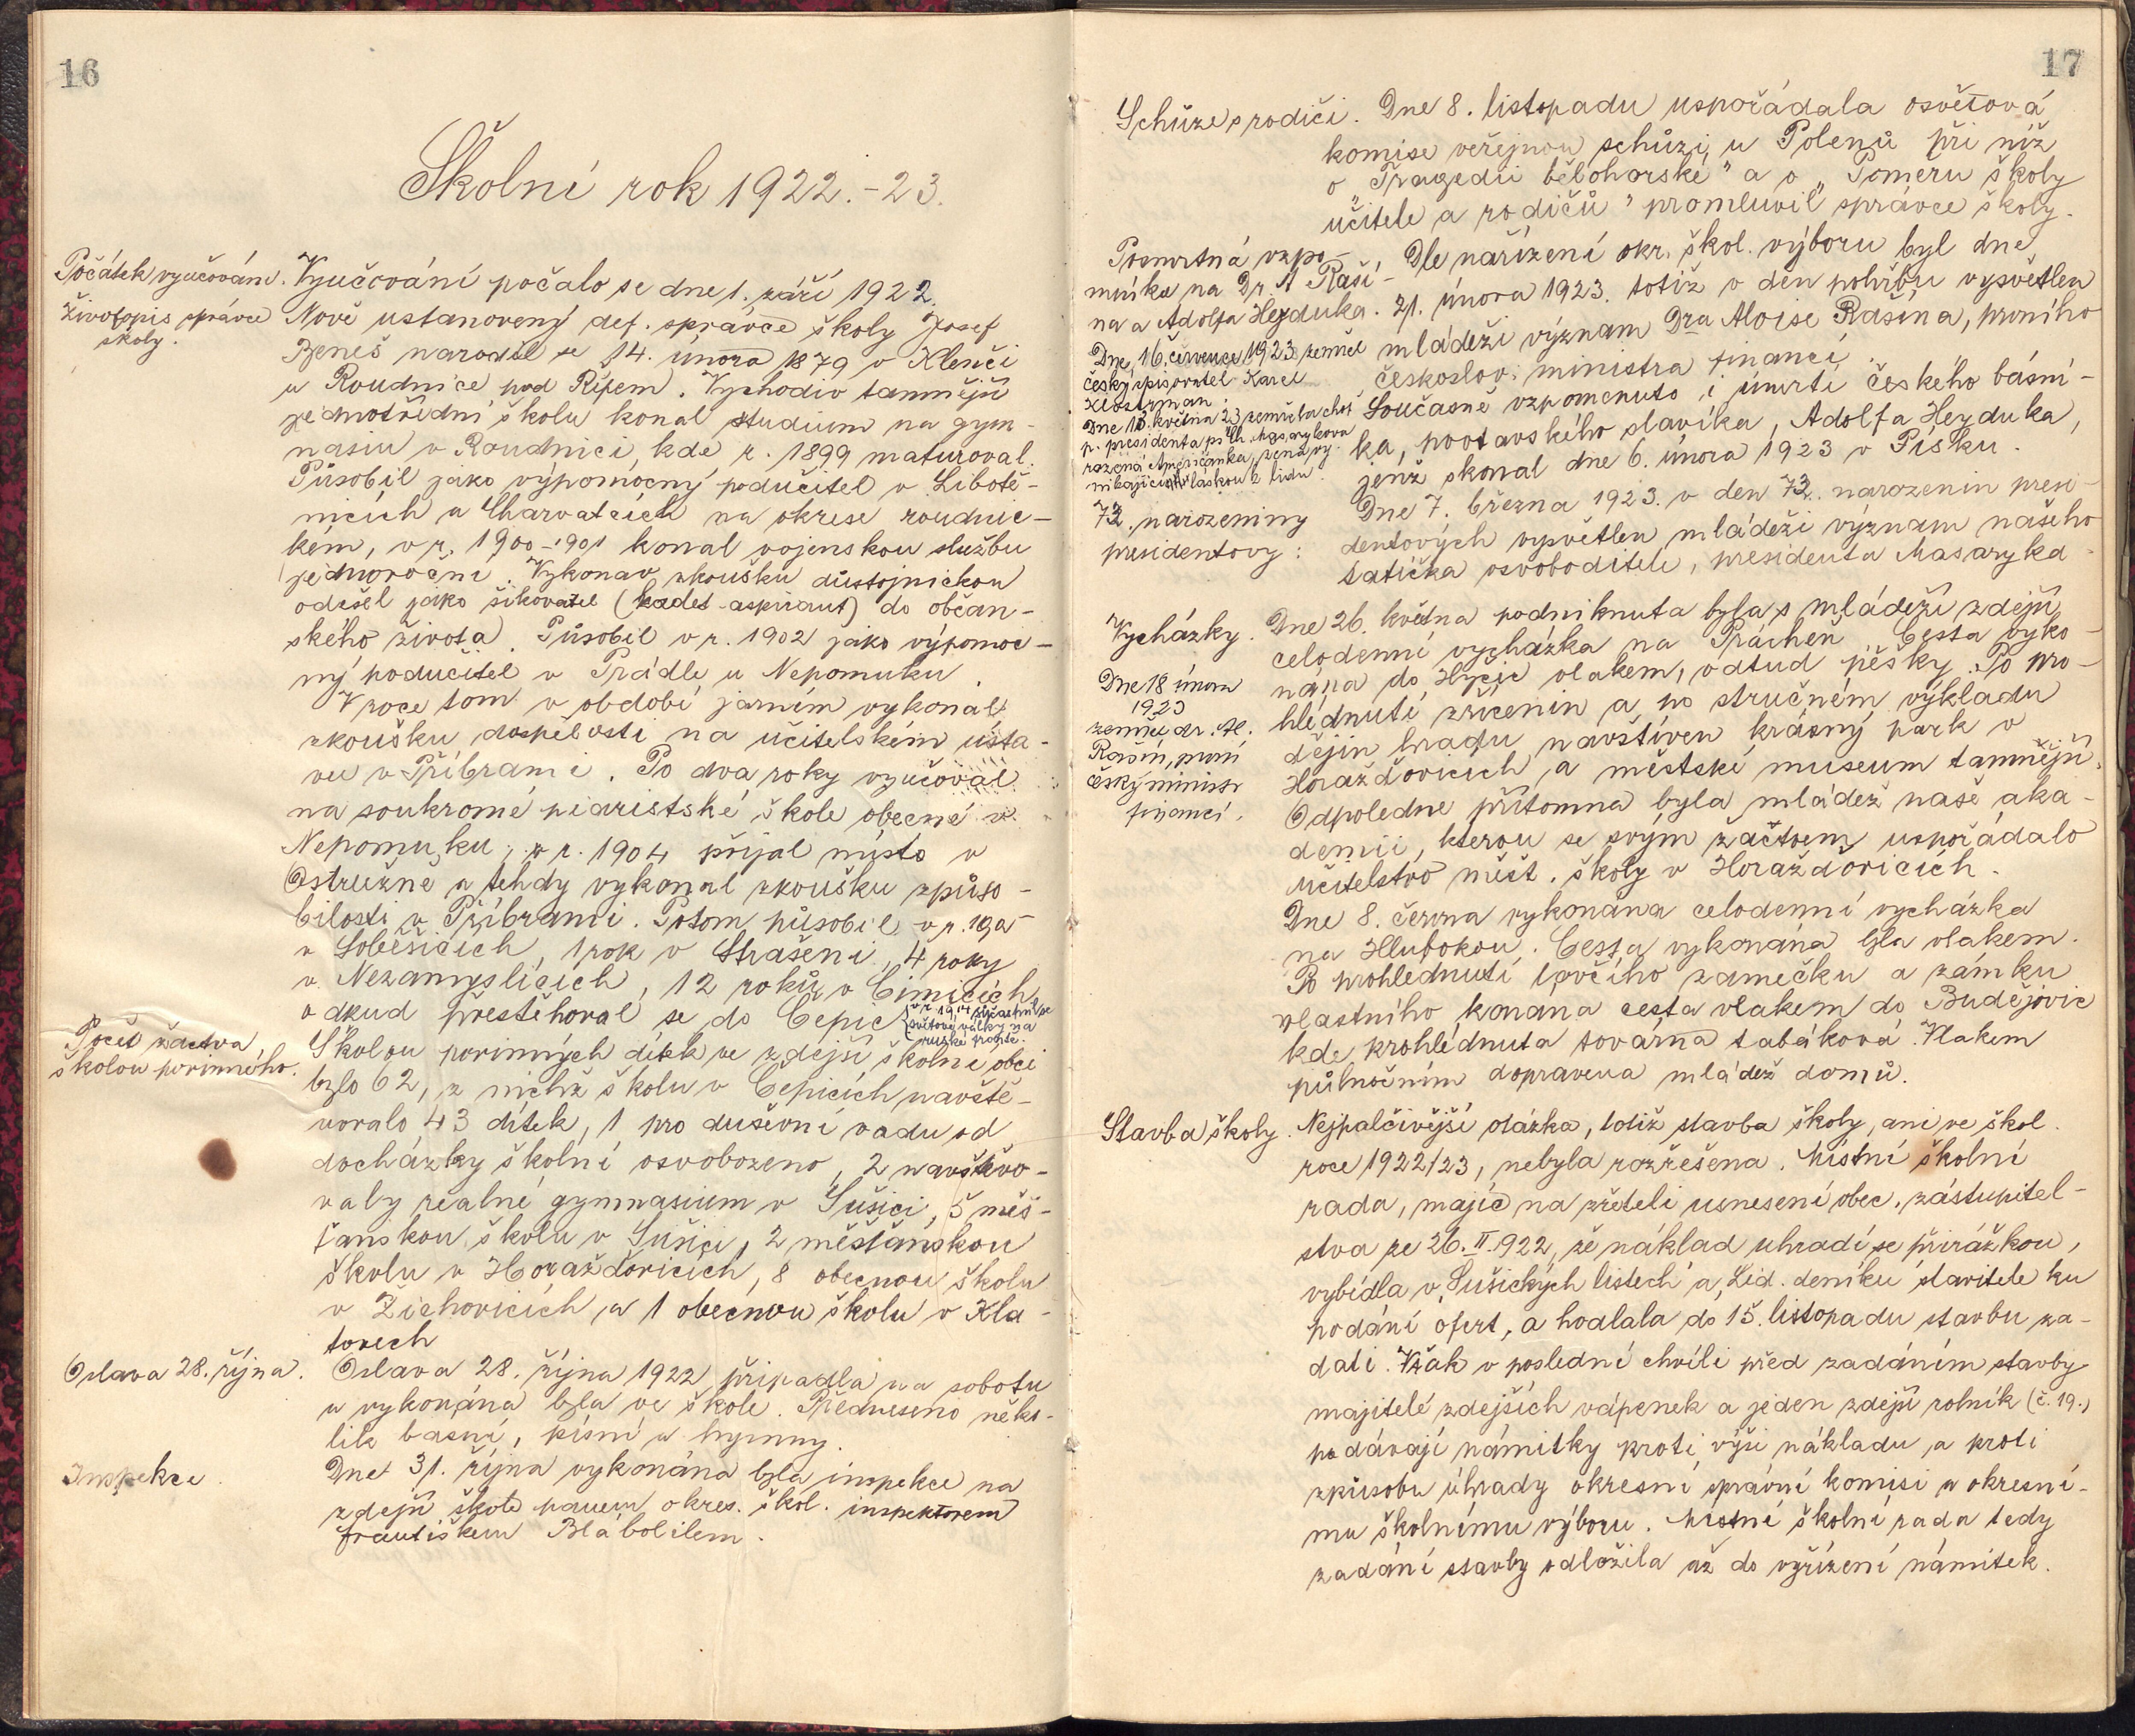 16
Školní rok 1922.-23.
Počátek vyučování.
Vyučování počalo se dne 1. září 1922.
Životopis správce
školy.
Nově ustanovený def. správce školy Josef
Beneš narodil se 14. února 1879 v Klenči
u Roudnice pod Řípem. Vychodiv tamnější
jednotřídní školu konal studium na gym-
nasiu v Roudnici, kde r. 1899 maturoval.
Působil jako výpomocný podučitel v Libotě-
nicích a Charvatcích na okrese roudnic-
kém, v r. 1900-1901 konal vojenskou službu
jednoroční. Vykonav zkoušku důstojnickou
odešel jako šikovatel (kadet-aspirant) do občan-
ského života. Působil v r. 1902 jako výpomoc-
ný podučitel v Prádle u Nepomuku.
V roce tom v období jarním vykonal
zkoušku dospělosti na učitelském ústa-
vu v Příbrami. Po dva roky vyučoval
na soukromé piaristské škole obecné v
Nepomuku, v r. 1904 přijal místo v
Ostružně a tehdy vykonal zkoušku způso-
bilosti v Příbrami. Potom působil v r. 1905
v Soběšicích, 1 rok v Strašeni, 4 roky
v Nezamyslicích, 12 roků v Čimicích,
odkud přestěhoval se do Čepic
(v r. 1914 súčastnil se
světové války na
ruské frontě.
Počet žactva
školou povinného.
Školou povinných dítek ve zdejší školní obci
bylo 62, z nichž školu v Čepicích navště-
vovalo 43 dítek, 1 pro duševní vadu od
docházky školní osvobozeno, 2 navštěvo-
valy reálné gymnasium v Sušici, 5 měš-
ťanskou školu v Sušici, 2 měšťanskou
školu v Horažďovicích, 8 obecnou školu
v Žichovicích, a 1 obecnou školu v Kla-
tovech
Oslava 28. října.
Oslava 28. října 1922 připadla na sobotu
a vykonána byla ve škole. Předneseno něko-
lik basní, písní a hymny.
Inspekce.
Dne 31. října vykonána byla inspekce na
zdejší škole panem okres. škol. inspektorem
Františkem Blábolilem.
17
Schůze s rodiči.
Dne 8. listopadu uspořádala osvětová
komise veřejnou schůzi, u Polenů při níž
o „Tragedii bělohorské" a o „Poměru školy
učitele a rodičů" promluvil správce školy.
Posmrtná vzpo-
mínka na Dr. A. Raší-
na a Adolfa Heyduka.
Dle nařízení okr. škol. výboru byl dne
21. února 1923. totiž v den pohřbu vysvětlen
mládeži význam Dra Aloise Rašína, prvního
českoslov. ministra financí.
Současně vzpomenuto i úmrtí českého básní-
ka, pootavského slavíka, Adolfa Heyduka,
jenž skonal dne 6. února 1923 v Písku.
Dne 16. července 1923 zemřel
český spisovatel Karel
Klostrman.
Dne 13. května 23 zemřela choť
p. presidenta pí Ch. Masaryková
rozená Američanka, žena vy-
nikající láskou k lidu.
73. narozeniny
presidentovy:
Dne 7. března 1923. v den 73. narozenin presi-
dentových vysvětlen mládeži význam našeho
tatíčka osvoboditele, presidenta Masaryka.
Vycházky.
Dne 26. května podniknuta byla s mládeží zdejší
celodenní vycházka na Prácheň. Cesta vyko-
nána do Hyčic vlakem, odtud pěšky. Po pro-
hlédnutí zřícenin a po stručném výkladu
dějin hradu, navštíven krásný park v
Horažďovicích, a městské museum tamnější.
Odpoledne přítomna byla mládež naše aka-
demii, kterou se svým žactvem uspořádalo
učitelstvo měšt. školy v Horažďovicích.
Dne 18 února
1923
zemřel dr. Al.
Rašín, první
český ministr
financí.
Dne 8. června vykonána celodenní vycházka
na Hlubokou. Cesta vykonána byla vlakem.
Po prohlédnutí lovčího zámečku a zámku
vlastního konána cesta vlakem do Budějovic
kde prohlédnuta továrna tabáková. Vlakem
půlnočním dopravena mládež domů.
Stavba školy.
Nejpalčivější otázka, totiž stavba školy, ani ve škol.
roce 1922/23, nebyla rozřešena. Místní školní
rada, majíc na zřeteli usnesení obec. zástupitel-
stva ze 26.II.922, že náklad uhradí se přirážkou,
vybídla v „Sušických listech a „Lid. deníku" stavitele ku
podání ofert, a hodlala do 15. listopadu stavbu za-
dati. Však v poslední chvíli před zadáním stavby
majitelé zdejších vápenek a jeden zdejší rolník (č. 19.)
podávají námitky proti výši nákladu a proti
způsobu úhrady okresní správní komisi a okresní-
mu školnímu výboru. Místní školní rada tedy
zadání stavby odložila až do vyřízení námitek.